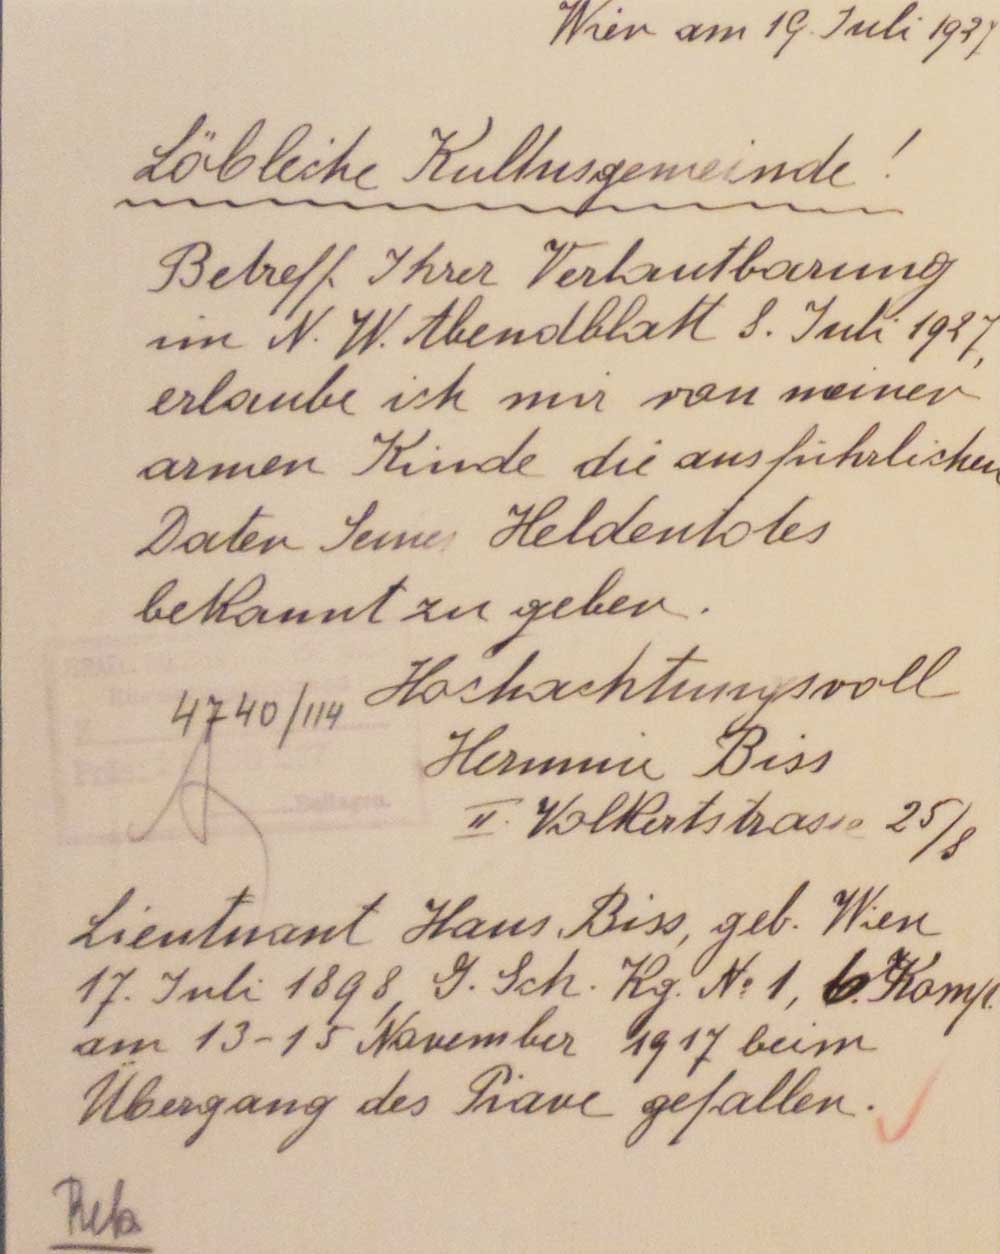 Wien am 19. Juli 1927
Löbleiche Kultusgemeinde!
Betreff. Ihrer Verlautbarung
im N. W. Abendblatt 8. Juli 1927,
erlaube ich mir von meinen
armen Kinde die ausführlichen
Daten Seines Heldentotes
bekannt zu geben.
Hochachtungsvoll
4740/114
Hermine Biss
II. Volkertstrasse 25/8
Beilagen.
Lieutnant Hans Biss, geb. Wien
17. Juli 1898, G. Sch. Rg. No 1, 6. Komp.
am 13-15 November 1917 beim
Übergang des Piave gefallen.